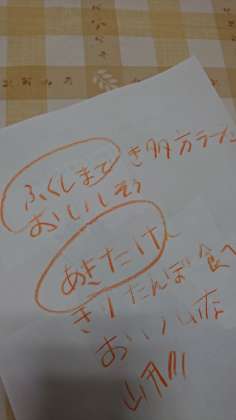 ふくしまて き多方ラーメ
おいしいそう
あきたけん
きりたんぽ 食べ
おいしいな